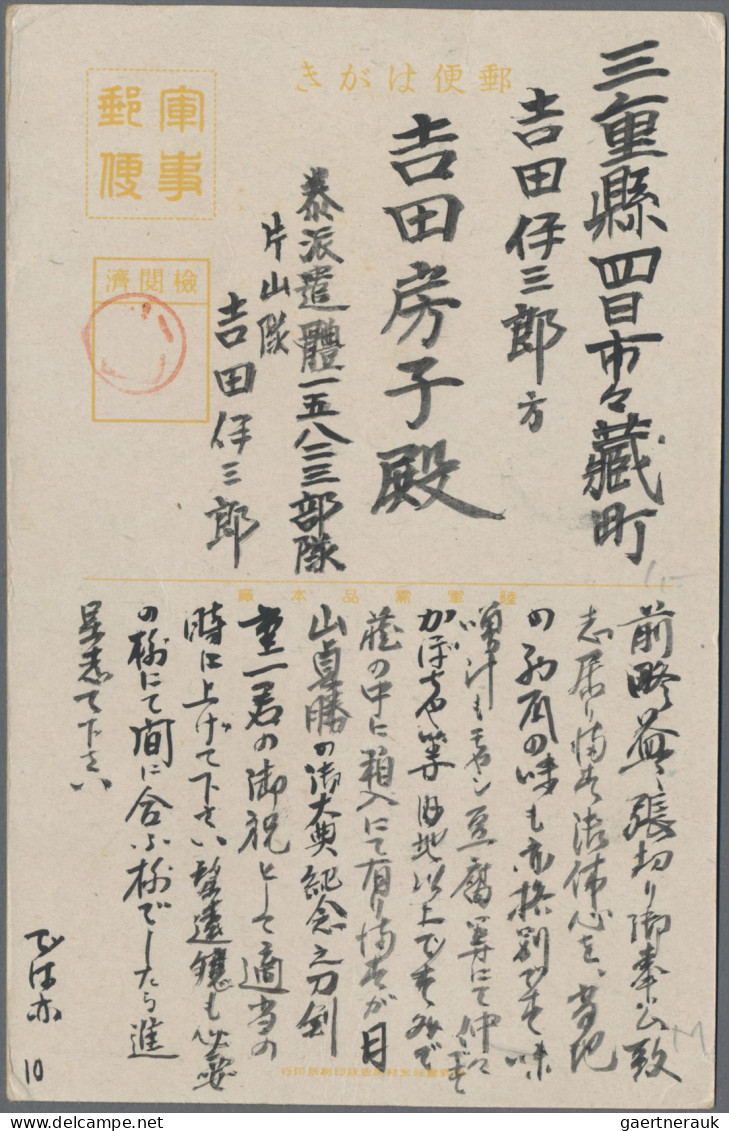 郵便はがき
軍事
郵便
檢閲濟
三重縣四日市々藏町
吉田伊三郎方
吉田房子殿
泰派遣體一五八二三部隊
片山隊
吉田伊三郎
陸軍需品本廠
前略益々張切り御奉公致
志居り御休心を、當地
の味も亦格別です味
噌汁もモヤシ豆腐等にて
かぼちや等内地以上です
の中に箱入にて有りますが目
山貞勝の御大典紀念之刀劍
重一君の御祝として適當の
時に上げて下さい
の様にて間に合ふ様でしたら進
呈志て下さい
では亦
10
gaertnerauk
www.delcampe.net